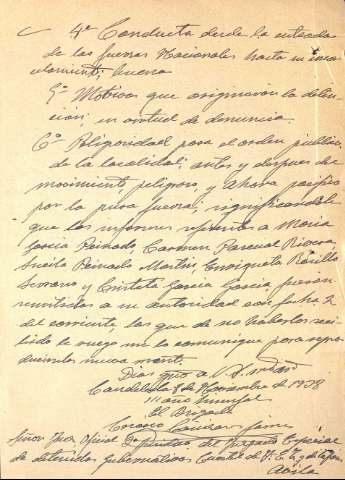 4º Conducta desde la entrada
de las fuerzas Nacionales hasta su
buena
5º Motivos que originaron la deten-
cion; en virtud de denuncia.
6º Peligrosidad para el orden publico
de la localidad; antes y despues del
movimiento, peligrosa, y ahora pacifica
por la pura fuerza; significandole
que los informes referente a Maria
Garcia Peinado, Carmen Pascual Rivera,
Peinado Martin, Enriqueta
Serrano y Garcia Garcia fueron
remitidos a su autoridad con fecha 2
del corriente, los que de no haberlos reci-
bido le ruego me lo comunique para repro-
ducirlos nueva
Dios gue a V. S. m
Candeleda 8 de Noviembre de 1938
III año triunfal
El Brigada
Señor Juez Oficial del Juzgado Especial
de detenidos gubernativos Cuartel de F. E. T. y de las
Avila